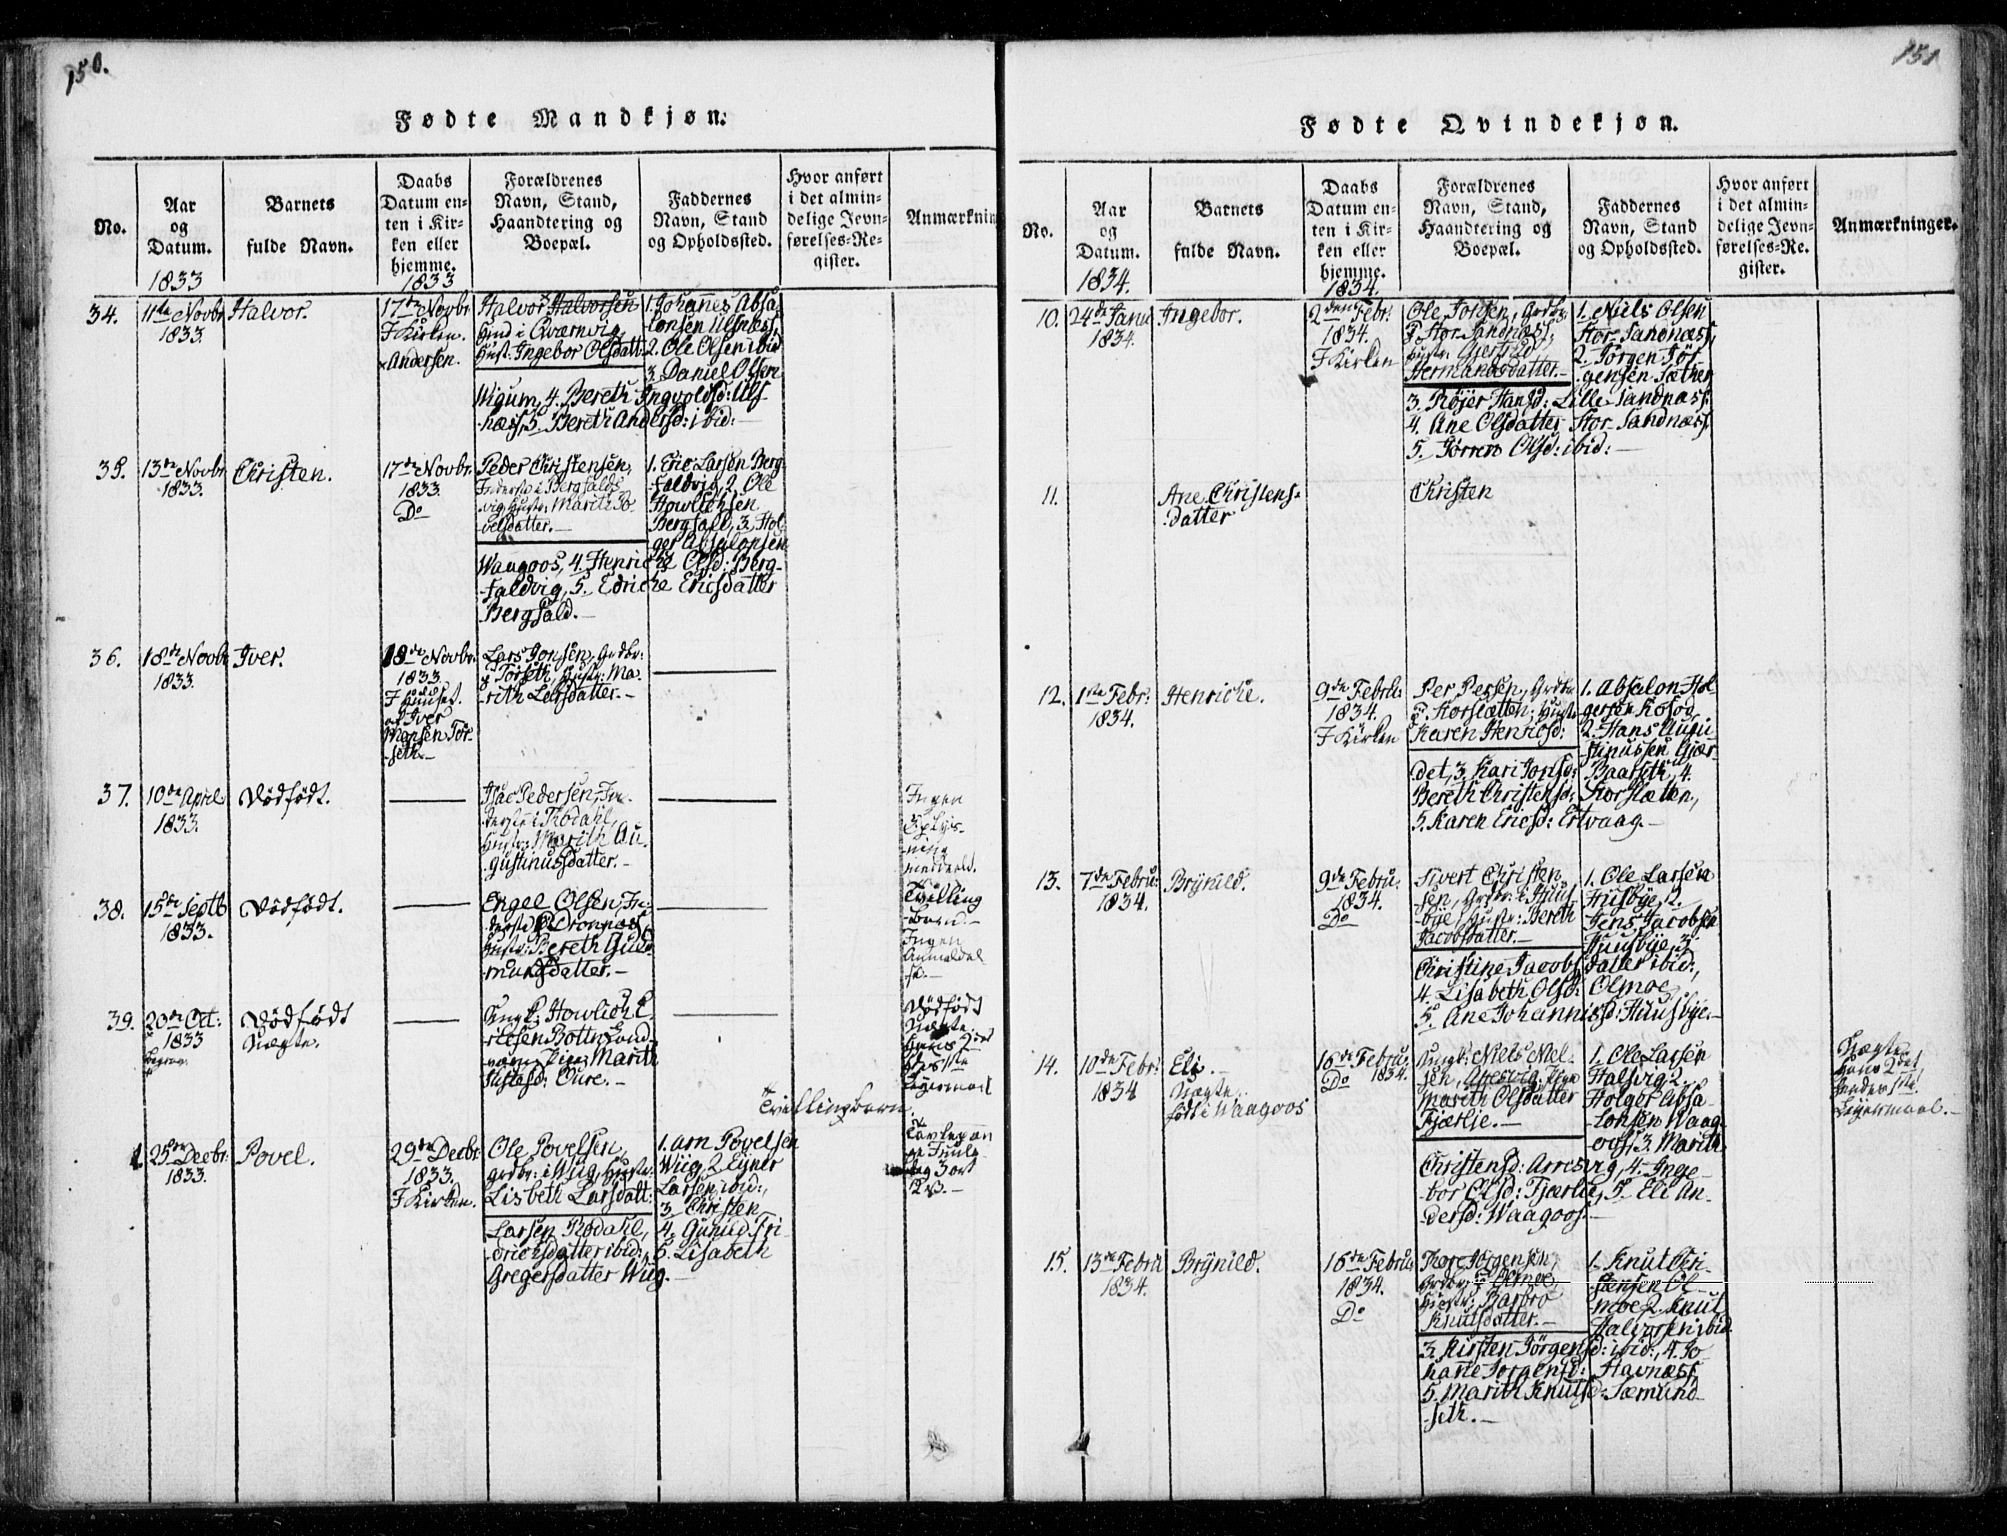 150.
Fødte Mandkjøn.
No.
Aar
og
Datum.
1833
Barnets
fulde Navn.
Daabs
Datum en-
ten i Kir-
ken eller
hjemme.
1833
Forældrenes
Navn, Stand,
Haandtering og
Boepæl.
Faddernes
Navn, Stand
og Opholdssted.
Hvor anført
i det almin-
delige Jevn-
førelses-Re-
gister.
Anmærknin
34.
11te Novbr
1833.
Halvor.
17de Novbr
I Kirken.
Andersen.
Halvor Halvorsen
Ind i Qværnvig
Hust. Ingebor Olsdatt:
1. Johannes Absa
lonsen Ulsness,
2. Ole Olsen ibid
3. Daniel Olsen
Wigum, 4. Bereth Ingvoldsd: Uls-
næss, 5. Bereth Andersd: ibid:
35.
13de Novbr
1833.
Christen.
17de Novbr.
1833.
Do
Peder Christensen,
Inderste i Bergfalds
vig Hustr: Marith Jo-
celsdatter.
1. Eric Larsen Berg-
faldvig, 2. Ole
Howlichsen
Bergfall, 3. Hol-
ger Absalonsen
Waagoos, 4. Henriche Olsd: Berg-
faldvig, 5. Edriche Ericsdatter
Bergfald.
36.
18de Novbr
1833.
Iver.
18de Novbr:
1833
I Huuset
af Iver
Monsen Tor-
seth.
Lars Jonsen, Grdbr:
p Torseth, Hustr: Ma-
rith Larsdatter.
37.
10de April
1833.
Dödfödt.
Isac Pedersen, In-
derste i Rodahl,
Hustr: Marith Au-
gustinusdatter.
Ingen
Oplys-
ning
meddeelt.
38.
15de Septb
1833.
Dödfödt.
Engel Olsen, In-
derste p Dromnæss
Hustr: Bereth Gud-
mundsdatter.
Tvilling
børn.
Ingen
Anmeldel
se.
39.
20de Oct:
1833
Dödfödt
Uægte.
Ungk: Howlich E-
ricsen Botten Lund-
Pige: Marith
Sustasd: Oure.
Dödfödt
Uægte
hans 1ste
hendes 1ste
Leiermaal
Tvillingbørn.
1.
25de Decbr.
1833.
Povel.
29de Decbr
1833.
I Kirken.
Ole Povelsen,
Grdbr: i Wiig, Hustr:
Lisbeth Larsdatt:
1. Arn Povelsen
Wiig, 2. Ejner
Larsen ibid:,
3. Christen
Larsen Rodahl, 4. Gunild Fri-
drichsdatter ibid:, 5. Lisabeth
Gregersdatter Wiig.
151
Fødte Qvindekjøn.
No.
Aar
og
Datum.
1834.
Barnets
fulde Navn.
Daabs
Datum en-
ten i Kir-
ken eller
hjemme.
1834.
Forældrenes
Navn, Stand,
Haandtering og
Boepæl.
Faddernes
Navn, Stand
og Opholdssted.
Hvor anført
i det almin-
delige Jevn-
førelses-Re-
gister.
Anmærkninger.
10.
24de Janu
1834.
Ingebor.
2den Febr.
1834.
I Kirken
Ole Jonsen, Grdbr.
p Stor Sandnæss,
Hustr: Giertrud
Hermandsdatter.
1. Niels Olsen
Stor Sandnæss,
2. Jørgen Jør-
gensen Sæther
3. Røjer Hansd: Lille Sandnæss
4. Ane Olsdatter Stor Sandnæss
5. Jorren Olsd: ibid:
11.
Ane Christens-
datter
Christen
12.
1ste Febr:
1834.
Henriche.
9de Febru:
1834.
I Kirken
Per Persen, Grdbr
p. Storslætten, Hustr
Karen Henricsd:
1. Absalon Hol
gersen Rosog
2. Hans Augu
stinussen Gjær-
det, 3. Kari Jonsd: Baarseth, 4.
Bereth Christensd: Storslætten,
5. Karen Ericsd: Ertvaag.
13.
7de Febru:
1834.
Brynild.
9de Febru.
1834.
Do
Sivert Christen-
sen, Grdbr. i Huus
bye, Hustr: Bereth
Jacobsdatter.
1. Ole Larsen
Husbye, 2.
Jens Jacobsen
Huusbye, 3.
Christine Jacobsdatter ibid:,
4. Lisabeth Olsd: Olmoe,
5. Ane Johannisd: Huusbye.
14.
10de Febr:
1834
Eli.
Uægte.
født i Waagoos
16de Febru.
Do 1834.
Ungk: Niels Niel-
sen, Arresvig, Pige
Marith Olsdatter
Fjærlie.
1. Ole Larsen
Halsvig 2.
Holger Absa-
lonsen Waag
oos, 3. Marith
Christensd: Arresvig, 4. Inge-
bor Olsd: Fjærlie, 5. Eli An-
dersd: Waagoos.
Uægte
hans 2det,
hendes 1ste
Leiermaal.
15.
13de Febru
1834.
Brynild.
16de Febru.
1834.
Do
Thore Jørgensen,
Grdbr p Olmoe,
Hustr: Barbro
Knutsdatter.
1. Knut Chri-
stensen Ol-
moe 2. Knut
Halvorsen ibid
3. Kirsten Jørgensd: ibid:, 4. Jo-
hane Jørgensd: Stavnæss,
5. Marith Knutsd: Sæmund-
seth.